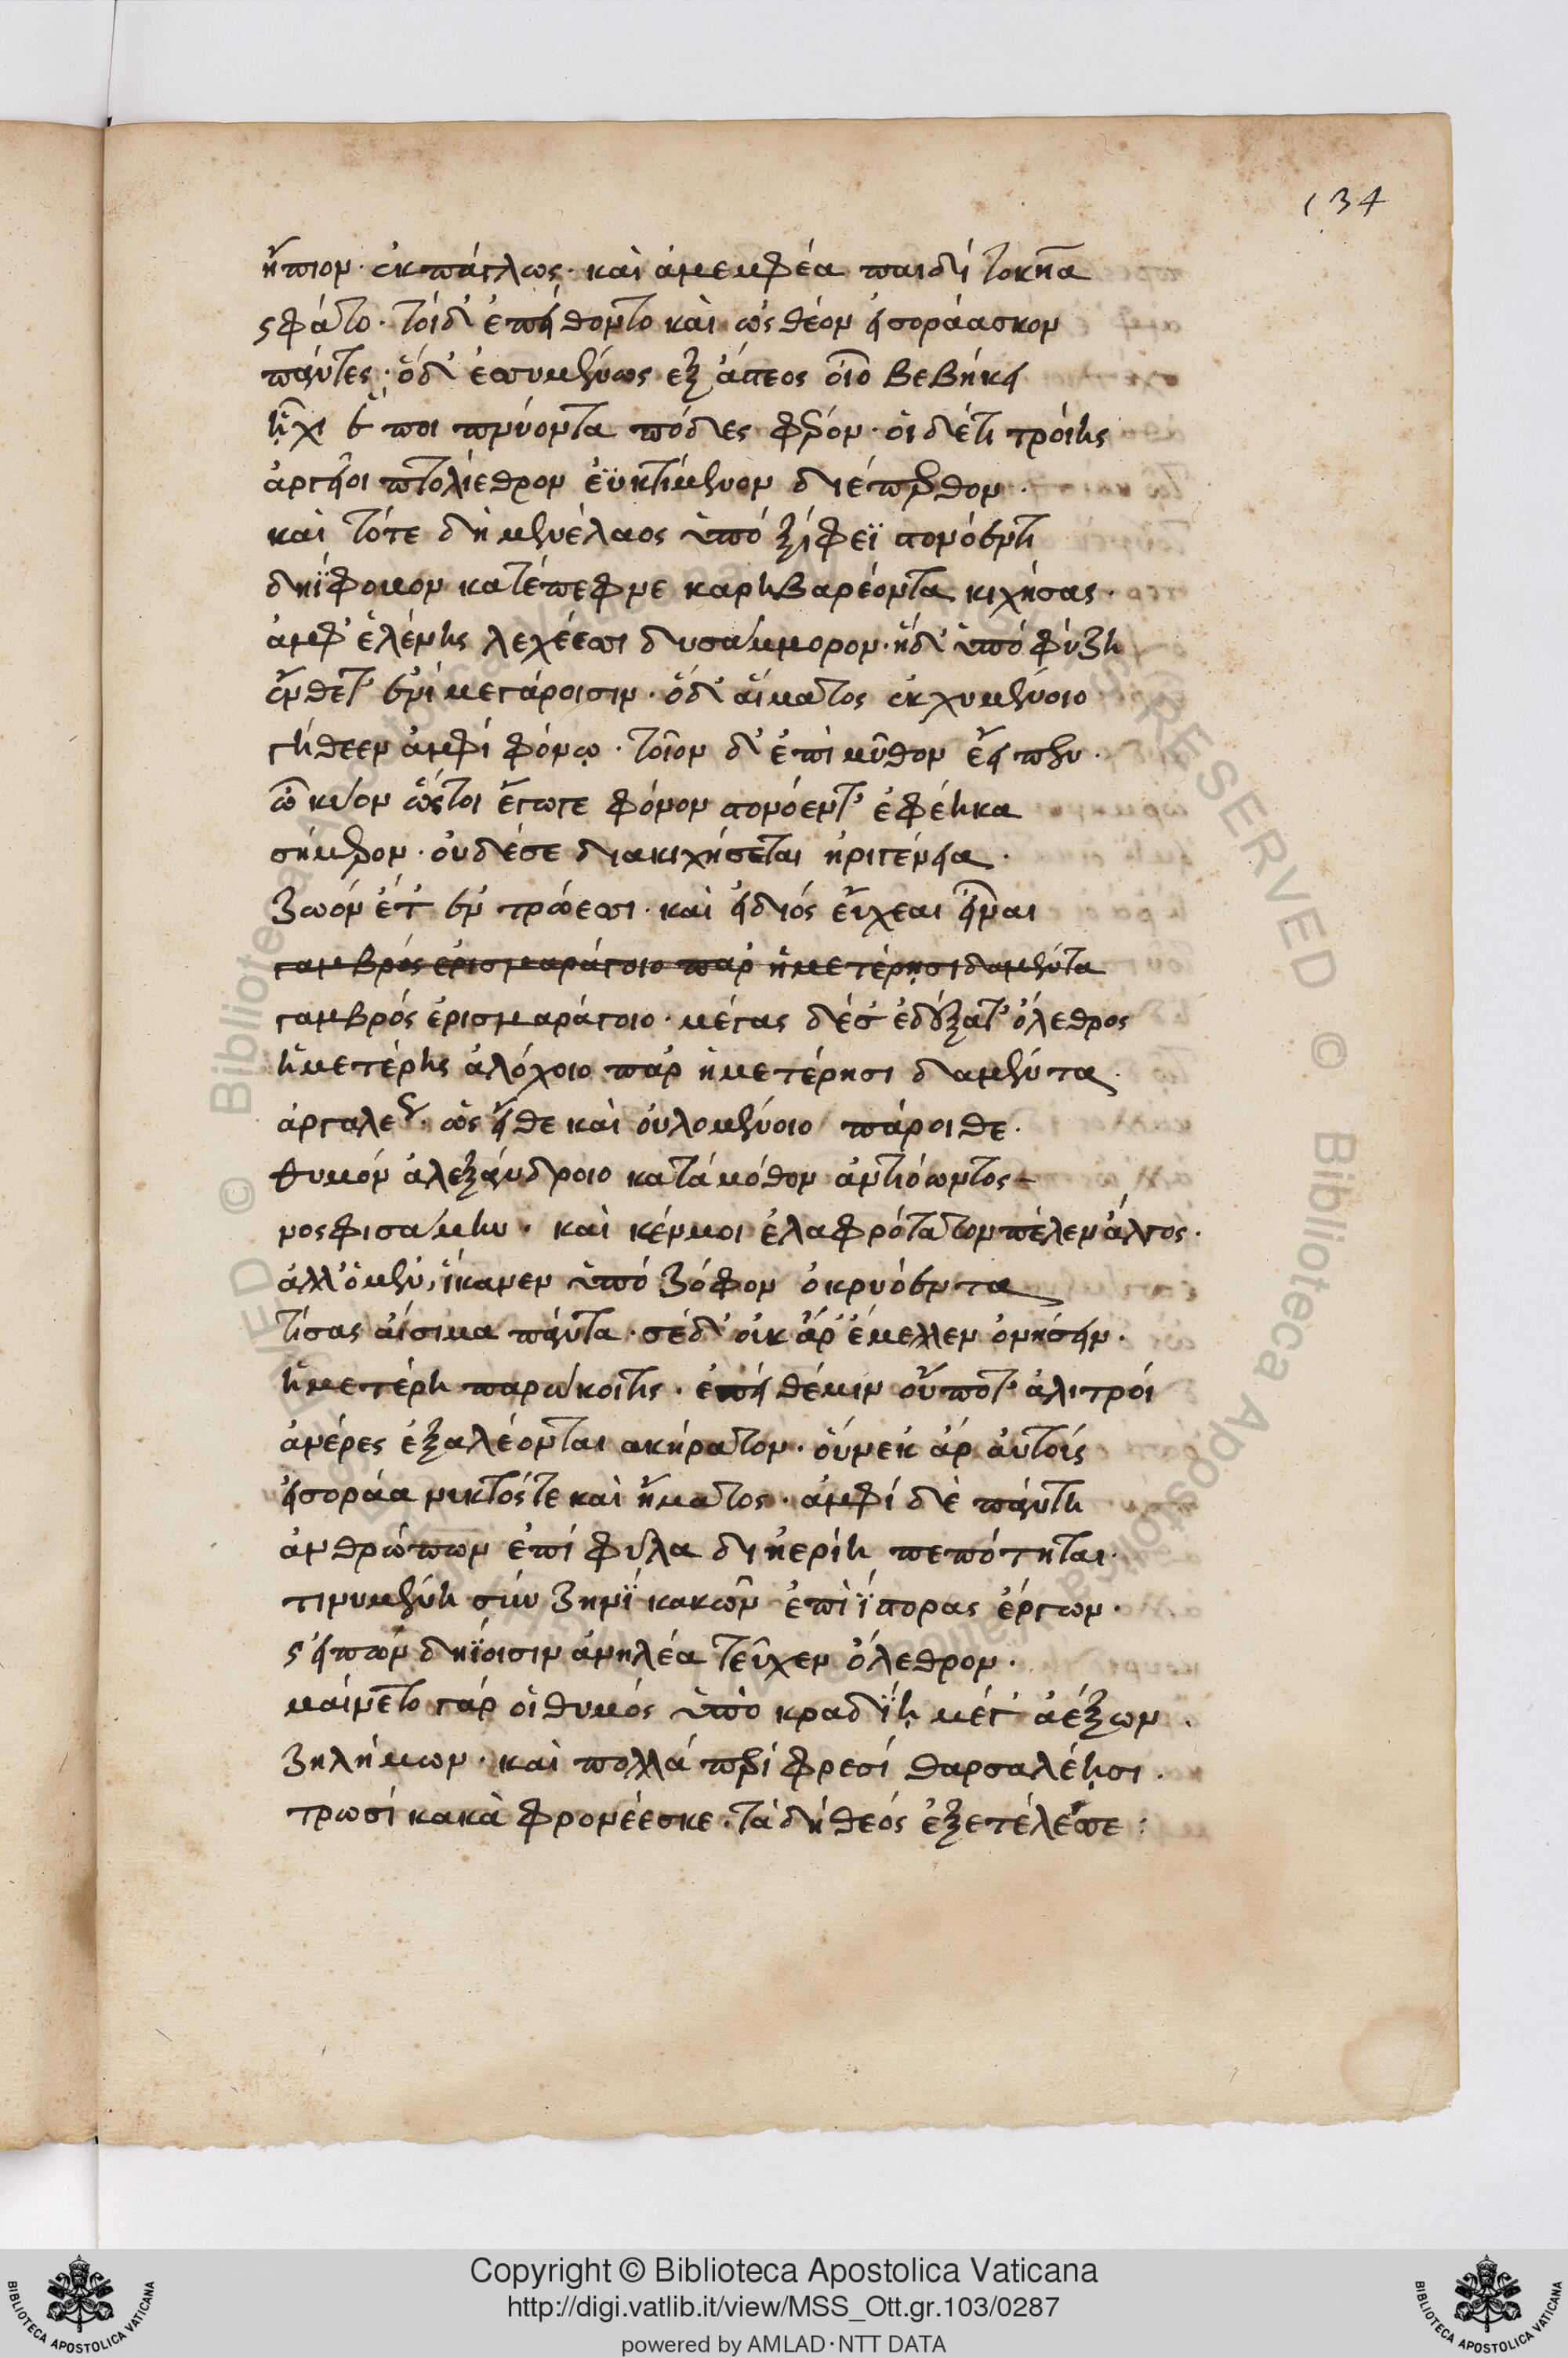 134
ἤπιον· ἐκπάγλως· καὶ ἀμεμφέα παιδὶ τοκῆα
ς φάτο· τοὶ δ' ἐπείθοντο καὶ ὡς θεὸν εἰσοράασκον
πάντες· ὁ δ' ἐσσυμένως ἐξ ἄστεος οἷο βεβήκει
ἧχι ἑ ποι πνύοντα πόδες φέρον· οἱ δ' ἔτι τροίης
ἀργεῖοι πτολίεθρον ἐϋκτίμενον διέπερθον·
καὶ τότε δὴ μενέλαος ὑπὸ ξίφεϊ στονόεντι
δηΐφοβον κατέπεφνε καρηβαρέοντα κιχήσας·
ἀμφ' ἑλένης λεχέεσσι δυσάμμορον· ἡ δ' ὑπὸ φύζῃ
κεύθετ' ἐνὶ μεγάροισιν· ὁ δ' αἵματος ἐκχυμένοιο
γήθεεν ἀμφὶ φόνῳ· τοῖον δ' ἐπὶ μῦθον ἔειπεν·
ὦ κύον ὥς τοι ἔγωγε φόνον στονόεντ' ἐφέηκα
σήμερον· οὐδέ σε δια κιχήσεται ἠριγένεια·
ζωὸν ἔτ' ἐν τρώεσσι· καὶ εἰ διὸς εὔχεαι εἶναι
γαμβρὸς ἐρισμαράγοιο παρ' ἡμετέρῃσι δαμέντα
γαμβρὸς ἐρισμαράγοιο· μέγας δέ σ' ἐδέξατ' ὄλεθρος
ἡμετέρης ἀλόχοιο παρ' ἡμετέρησι δαμέντα·
ἀργαλέως· ὡς εἴθε καὶ οὐλομένοιο πάροιθε·
θυμὸν ἀλεξάνδροιο κατὰ μόθον ἀντιόωντος
νοσφισάμην· καὶ κέν μοι ἐλαφρότατον πέλεν ἄλγος·
ἀλλ' ὁ μὲν, ἵκανεν ὑπὸ ζόφον ὀκρυόεντα
τίσας αἴσιμα πάντα· σὲ δ' οὐκ ἄρ' ἔμελλεν ὀνήσειν·
ἡμετέρη παράκοιτις· ἐπεὶ θέμιν οὔποτ' ἀλιτροὶ
ἀνέρες ἐξαλέονται ἀκήρατον· οὕνεκ' ἄρ' αὐτοὺς
εἰσοράα νυκτός τε καὶ ἤματος· ἀμφὶ δὲ πάντη
ἀνθρώπων ἐπὶ φῦλα διηερίη πεπότηται·
τινυμένη σὺν ζηνὶ κακῶν ἐπιΐστορας ἔργων·
ς εἰπὼν δηΐοισιν ἀνηλέα τεῦχεν ὄλεθρον·
μαίνετο γάρ οἱ θυμὸς ὑπὸ κραδίῃ μέγ' ἀέξων·
ζηλήμων· καὶ πολλὰ περὶ φρεσὶ θαρσαλέῃσι·
τρωσὶ κακὰ φρονέεσκε· τὰ δὴ θεὸς ἐξετέλεσσε:
Copyright © Biblioteca Apostolica Vaticana
http://digi.vatlib.it/view/MSS_Ott.gr.103/0287
powered by AMLAD·NTT DATA